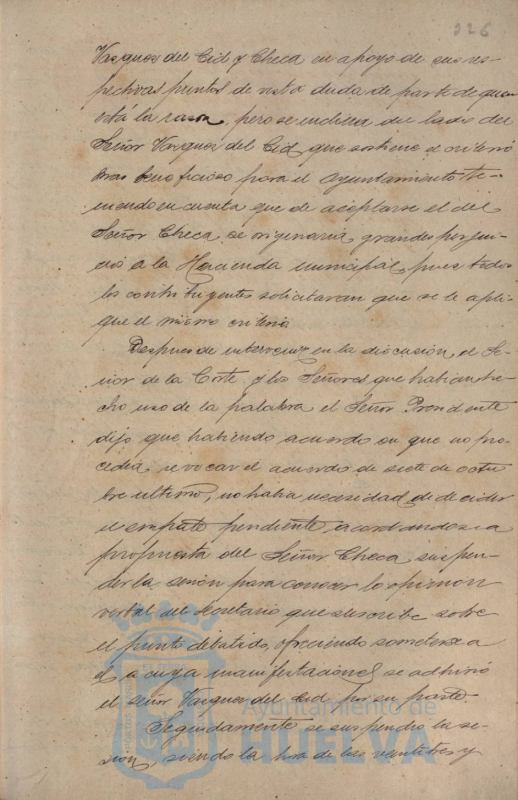 326
Vazquez del Cid y Checa en apoyo de sus res-
pectivos puntos de vista duda de parte de quien
está la razon, pero se inclina del lado del
Señor Vazquez del Cid, que sostiene el criterio
mas beneficioso para el Ayuntamiento te-
niendo en cuenta que de aceptarse el del
Señor Checa, se originaria grandes perjui-
cios a la Hacienda municipal, pues todos
los contribuyentes solicitaran que se le apli-
que el mismo criterio
Despues de intervenir en la discusión, el Se-
ñor de la Corte y los Señores que habian he-
cho uso de la palabra el Señor Presidente
dijo que habiendo acuerdo en que no pro-
cedia revocar el acuerdo de siete de octu
bre ultimo, no habia necesidad de decidir
el empate pendiente acordandose a
propuesta del Señor Checa suspen-
der la sesión para conocer la opinion
verbal del Secretario que suscribe sobre
el punto debatido, ofreciendo someterse a
el a cuya manifestaciones se adhirió
el señor Vazquez del Cid por su parte.
Seguidamente se suspendio la se-
sion, siendo la hora de las veintitres y
Ayuntamiento de
HUELVA